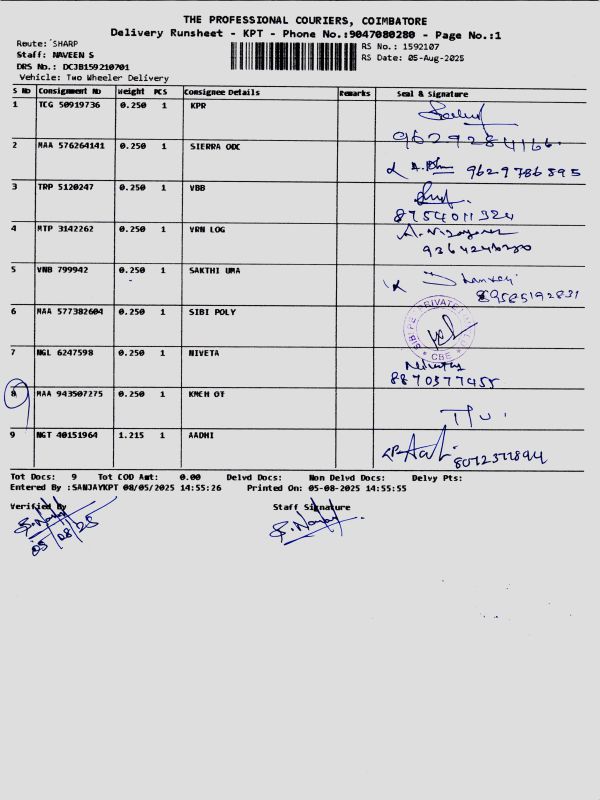 THE PROFESSIONAL COURIERS, COIMBATORE
Delivery Runsheet - KPT - Phone No.:9047080280 - Page No.:1
Route: SHARP
RS No.: 1592107
Staff: NAVEEN S
RS Date: 05-Aug-2025
DRS No.: DCJB159210701
Vehicle: Two Wheeler Delivery
S No Consignment No Weight PCS Consignee Details Remarks Seal & Signature
1 TCG 50919736 0.250 1 KPR
9629284166.
2 MAA 576264141 0.250 1 SIERRA ODC
9629786895
3 TRP 5120247 0.250 1 VBB
8754011324
4 MTP 3142262 0.250 1 VRN LOG
9364246280
5 VNB 799942 0.250 1 SAKTHI UMA
89585192831
6 MAA 577382604 0.250 1 SIBI POLY
PRIVATE
CBE
7 NGL 6247598 0.250 1 NIVETA
8 MAA 943507275 0.250 1 KMCH OT
9 NGT 40151964 1.215 1 AADHI
Tot Docs: 9 Tot COD Amt: 0.00 Delvd Docs: Non Delvd Docs: Delvy Pts:
Entered By :SANJAYKPT 08/05/2025 14:55:26 Printed On: 05-08-2025 14:55:55
Verified By Staff Signature
05/08/25